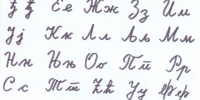 Ђ ђ Е е Ж ж З з И и
Ј ј К к Л л Љ љ М м
Н н Њ њ О о П п Р р
С с Т т Ћ ћ У у Ф ф